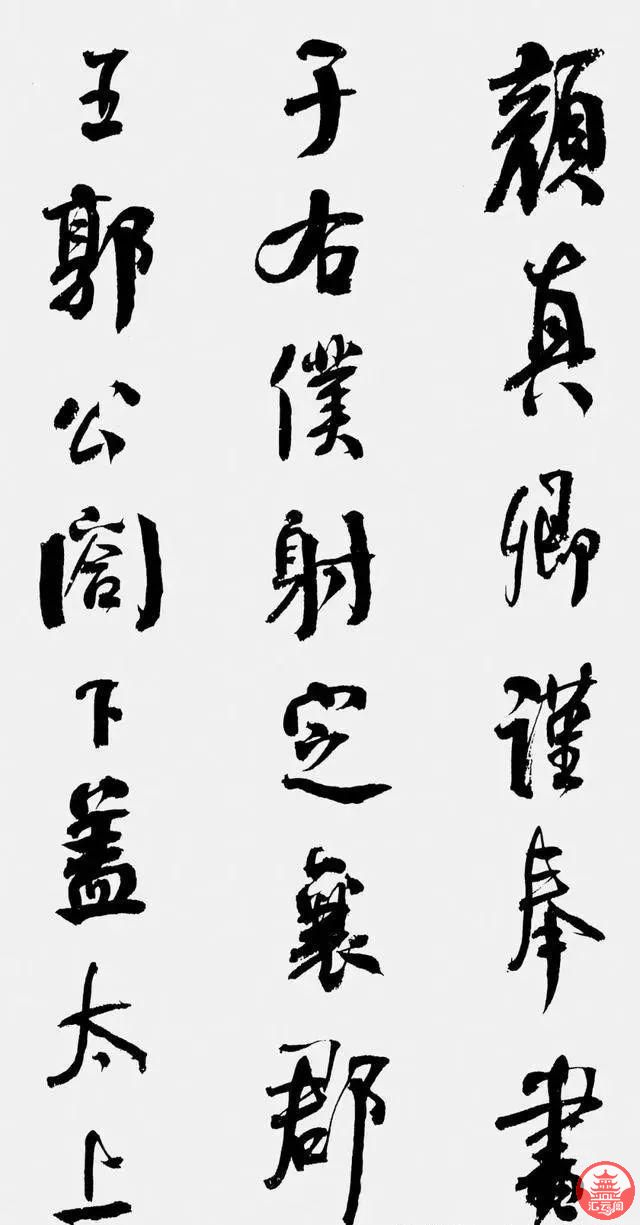 顏真卿謹奉書
于右僕射定襄郡
王郭公閤下蓋太上
汇云阁